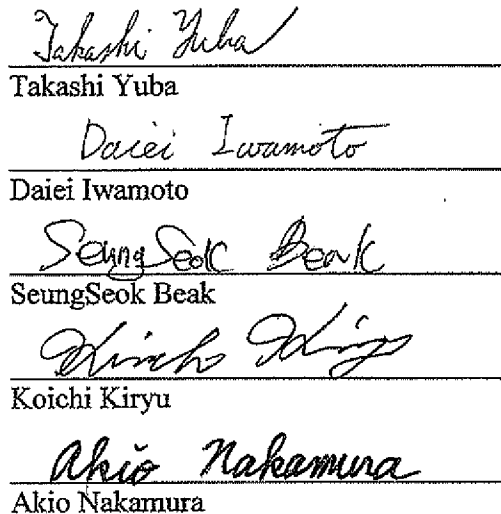 Takashi Yuba
Takashi Yuba
Daiei Iwamoto
Daiei Iwamoto
SeungSeok Beak
SeungSeok Beak
Koichi Kiryu
Akio Nakamura
Akio Nakamura